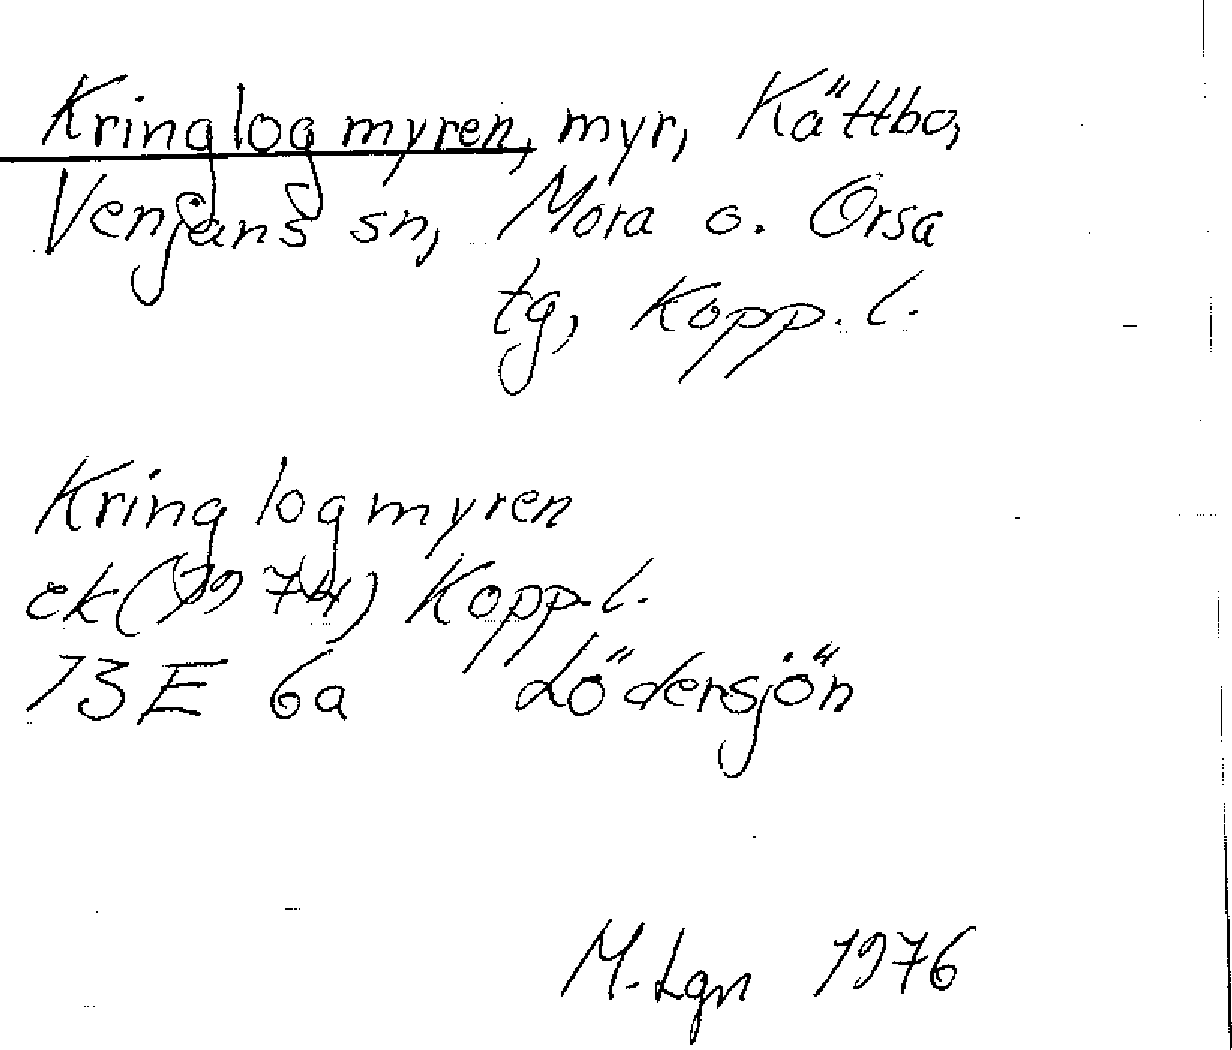 Kringlogmyren, myr, Kättbo,
Venjans sn, Mora o. Orsa
tg, Kopp. l.
Kringlogmyren
ek (1974) Kopp. l.
13E 6a Lödersjön
M. Lgn 1976